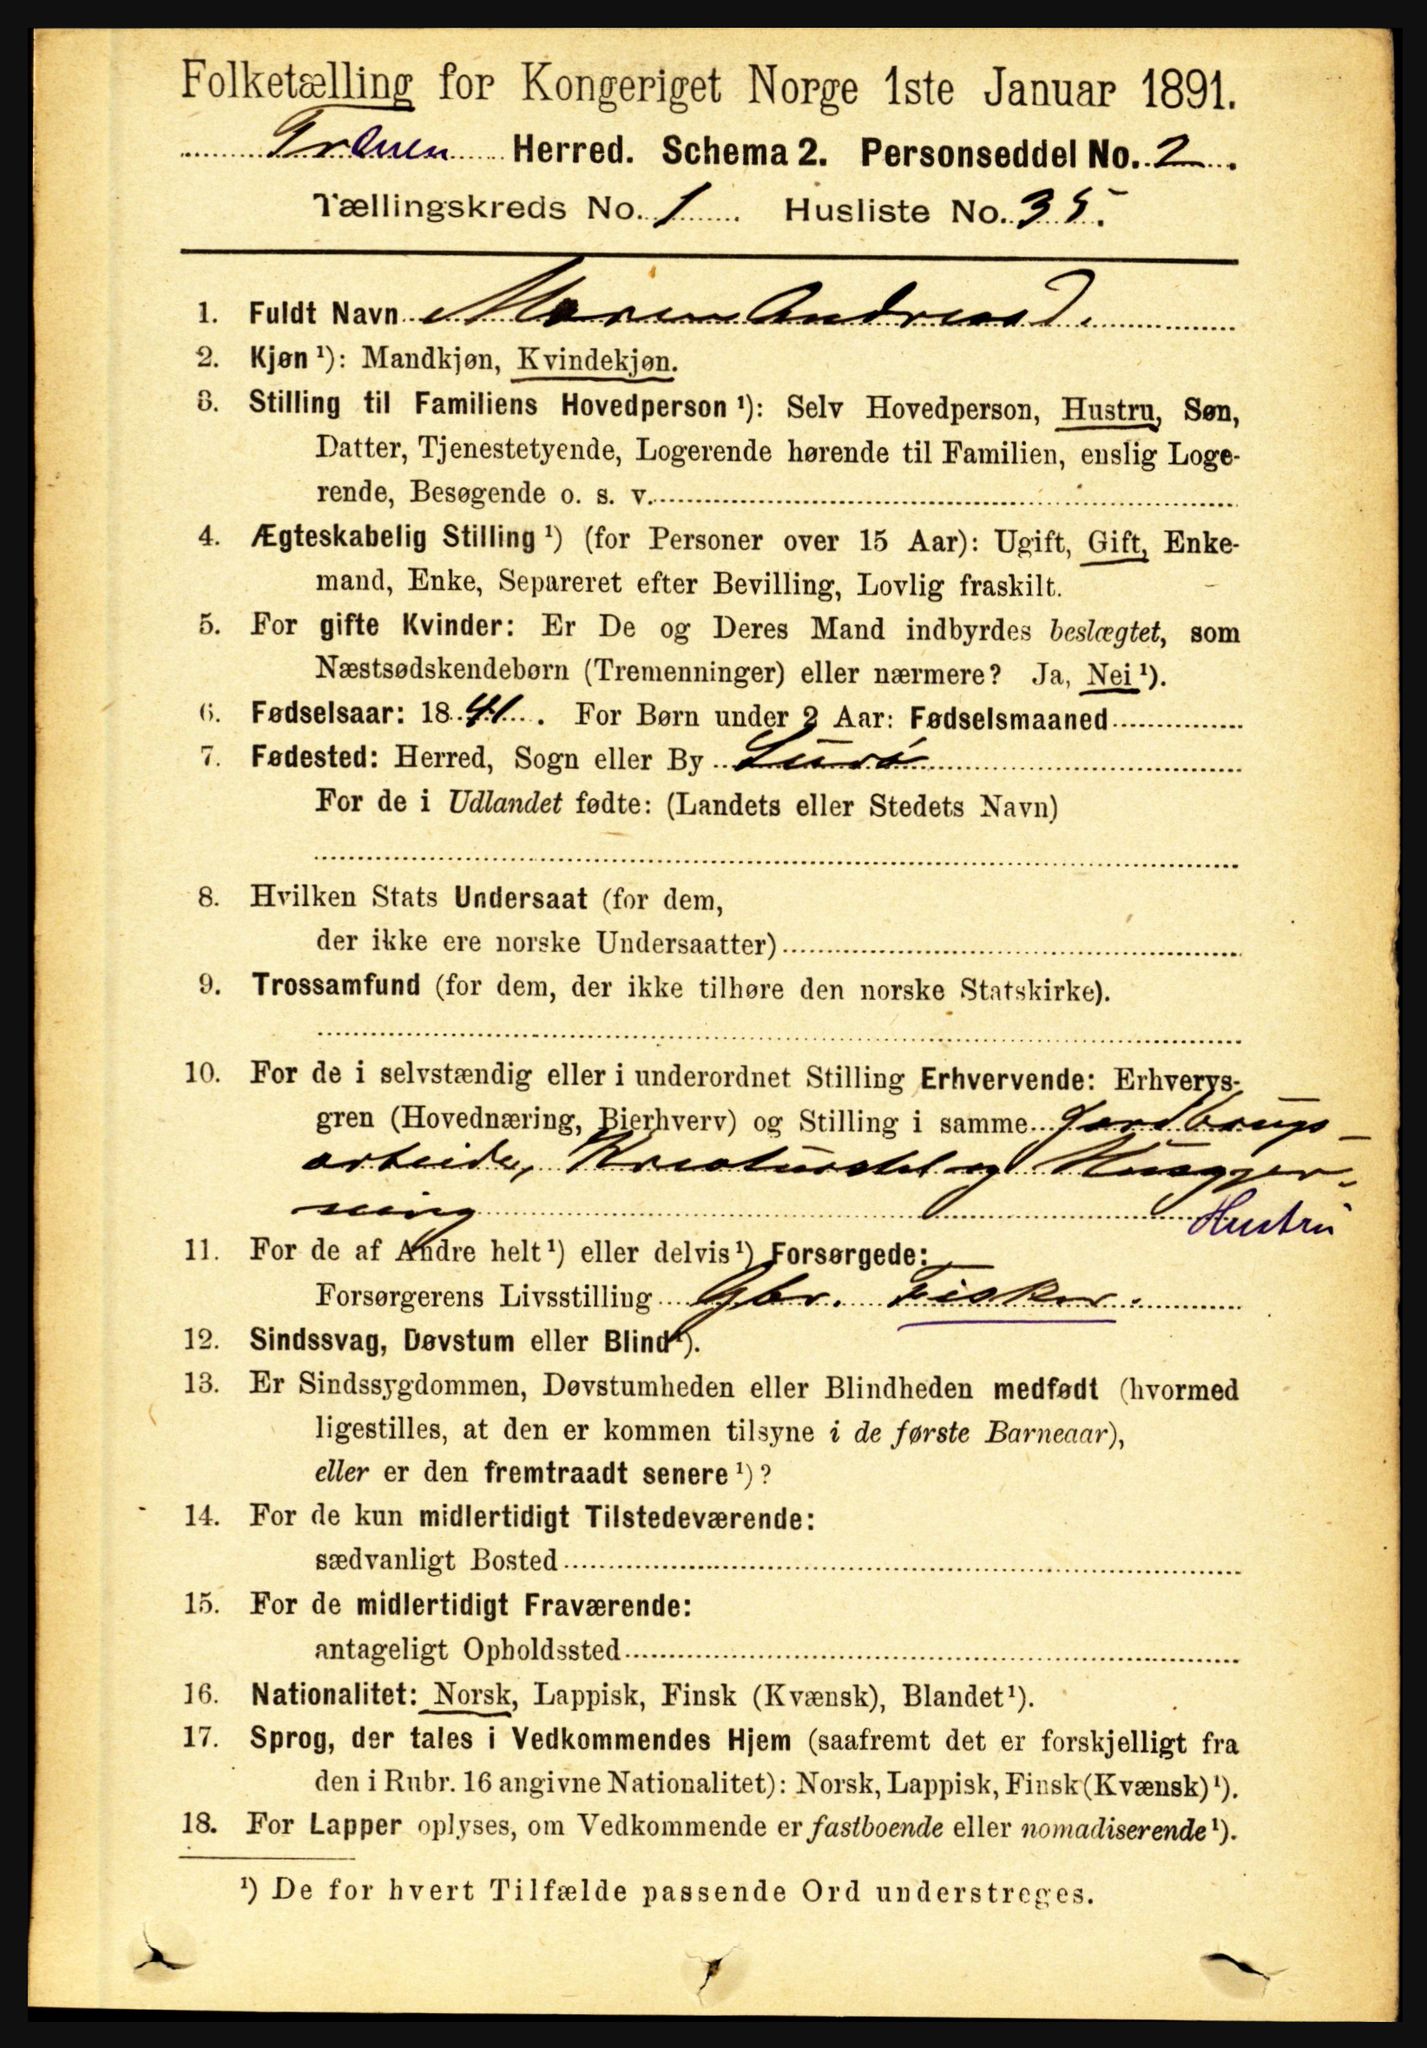 Folketælling for Kongeriget Norge 1ste Januar 1891.
Trænen Herred. Schema 2. Personseddel No. 2.
Tællingskreds No. 1 Husliste No. 35.
1. Fuldt Navn Maren Andreasd.
2. Kjøn ¹): Mandkjøn, Kvindekjøn.
3. Stilling til Familiens Hovedperson ¹): Selv Hovedperson, Hustru, Søn,
Datter, Tjenestetyende, Logerende hørende til Familien, enslig Loge-
rende, Besøgende o. s. v.
4. Ægteskabelig Stilling ¹) (for Personer over 15 Aar): Ugift, Gift, Enke-
mand, Enke, Separeret efter Bevilling, Lovlig fraskilt.
5. For gifte Kvinder: Er De og Deres Mand indbyrdes beslægtet, som
Næstsødskendebørn (Tremenninger) eller nærmere? Ja, Nei ¹).
6. Fødselsaar: 1841. For Børn under 2 Aar: Fødselsmaaned
7. Fødested: Herred, Sogn eller By Lurø
For de i Udlandet fødte: (Landets eller Stedets Navn)
8. Hvilken Stats Undersaat (for dem,
der ikke ere norske Undersaatter)
9. Trossamfund (for dem, der ikke tilhøre den norske Statskirke).
10. For de i selvstændig eller i underordnet Stilling Erhvervende: Erhvervs-
gren (Hovednæring, Bierhverv) og Stilling i samme Jordbrugs-
arbeide, Kreaturstel og Husgjer-
ning Hustru
11. For de af Andre helt ¹) eller delvis ¹) Forsørgede:
Forsørgerens Livsstilling Gbr. Fisker.
12. Sindssvag, Døvstum eller Blind ¹).
13. Er Sindssygdommen, Døvstumheden eller Blindheden medfødt (hvormed
ligestilles, at den er kommen tilsyne i de første Barneaar),
eller er den fremtraadt senere ¹)?
14. For de kun midlertidigt Tilstedeværende:
sædvanligt Bosted
15. For de midlertidigt Fraværende:
antageligt Opholdssted
16. Nationalitet: Norsk, Lappisk, Finsk (Kvænsk), Blandet ¹).
17. Sprog, der tales i Vedkommendes Hjem (saafremt det er forskjelligt fra
den i Rubr. 16 angivne Nationalitet): Norsk, Lappisk, Finsk (Kvænsk) ¹).
18. For Lapper oplyses, om Vedkommende er fastboende eller nomadiserende ¹).
¹) De for hvert Tilfælde passende Ord understreges.